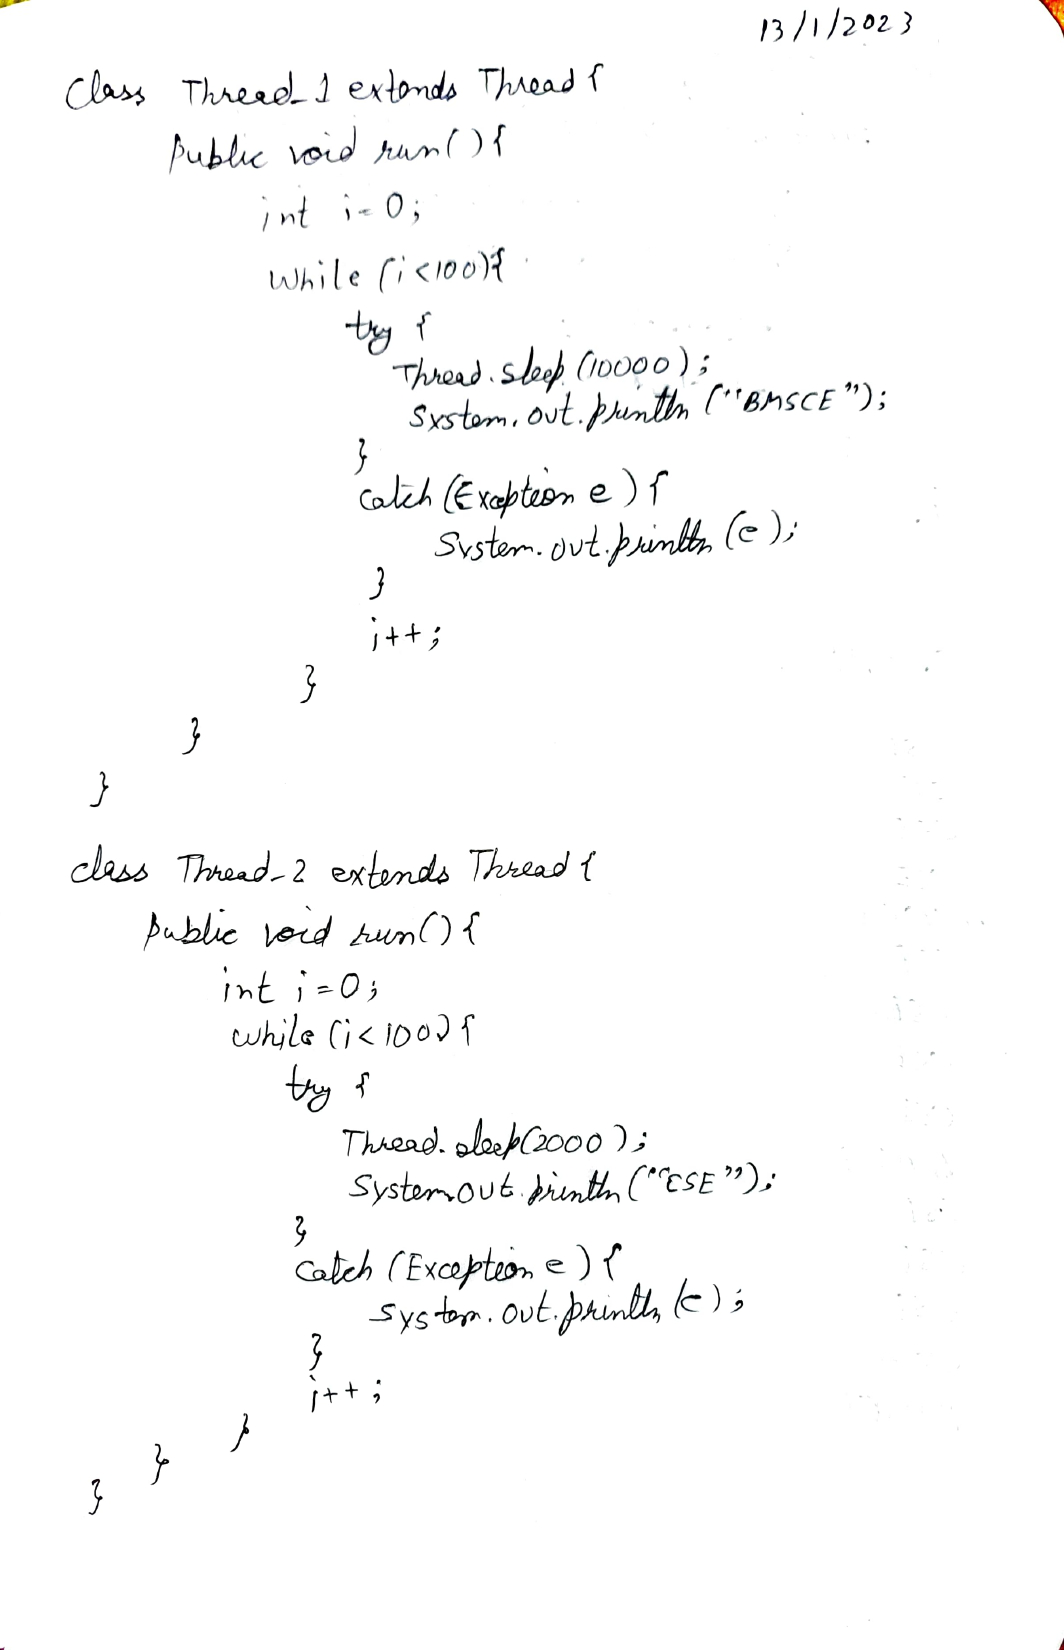 13/1/2023
Class Thread_1 extends Thread {
public void run() {
int i=0;
while (i<100){
try {
Thread.sleep (10000);
System.out.println ("BMSCE");
}
catch (Exception e) {
System.out.println (e);
}
i++;
}
}
}
class Thread_2 extends Thread {
public void run() {
int i=0;
while (i<100) {
try {
Thread.sleep(2000);
System.out.println ("CSE");
}
catch (Exception e) {
System.out.println (e);
}
i++;
}
}
}